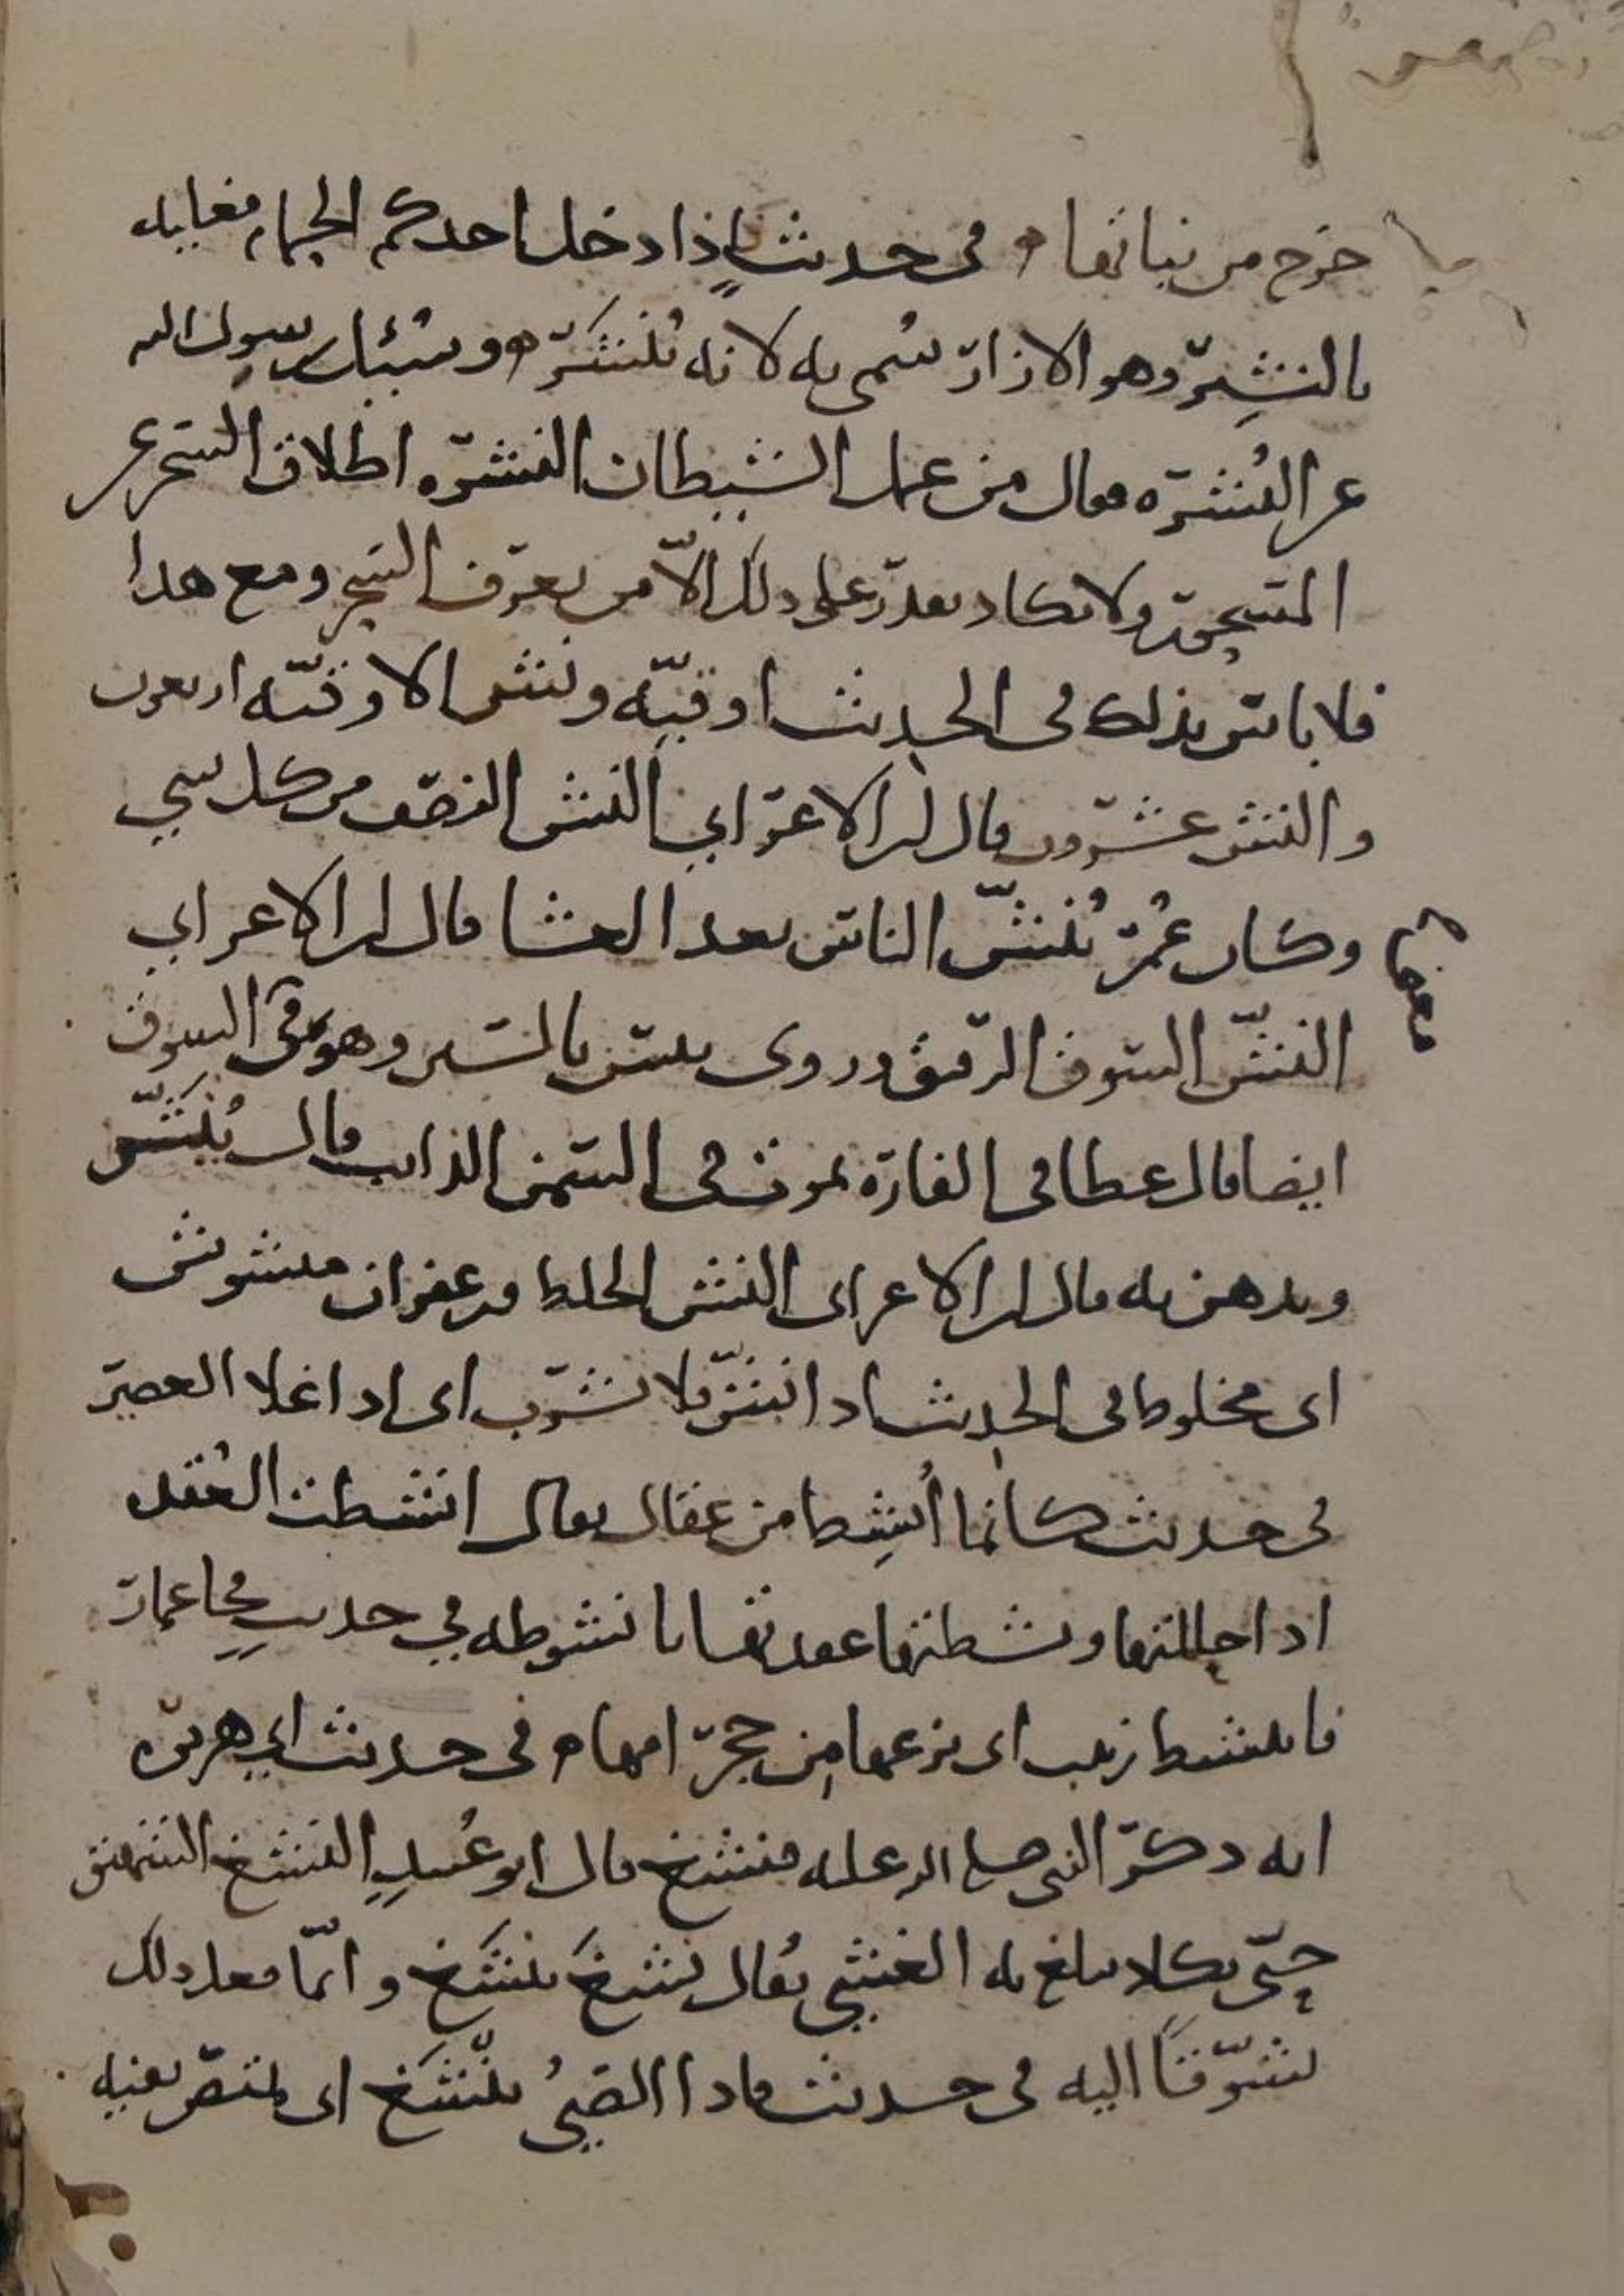 خرج من نباتها ه في حديث إذا دخل احدكم الحمام فعليه
بالنشير وهو الازار سمي به لانه يُنشَر ه وسُئل رسول الله
عن النُشرة فقال من عمل الشيطان النشره اطلاق السحر عن
المسحور ولا يكاد يقدر على ذلك الّا من يعرف السحر ومع هذا
فلا باس بذلك في الحديث اوقيّه ونش الاوقيّه اربعون
والنش عشرون قال ابن الاعرابي النش النصف من كل شي
وكان عُمر يُنشّ الناس بعد العشا قال ابن الاعرابي
النشّ السوق الرفيق وروى ينس بالسين وهو السوق
ايضا قال عطا في الفارة تموت في السمن الذايب قال يُنَشّ
ويدهن به قال ابن الاعرابي النش الخلط وزعفران منشوش
اى مخلوط في الحديث اذا نشّ فلا تشرب اى اذا غلا العصير
في حديث كانما أُنشِط من عقال يقال انشطت العقد
اذا حللتها ونشطتها عقدتها بانشوطه في حديث عمار
فانتشط زينب اى نزعها من حجر امها ه في حديث ابي هريره
انه ذكر النبي صلى الله عليه فنشغ قال ابو عُبيدٍ النشغ الشهيق
حتّى يكاد يبلغ به الغشي يُقال نشغَ ينشَغ وانّما فعل ذلك
تشوّقاً اليه في حديث فاذا الصبيُ ينشَغ اى يمتص بفيه